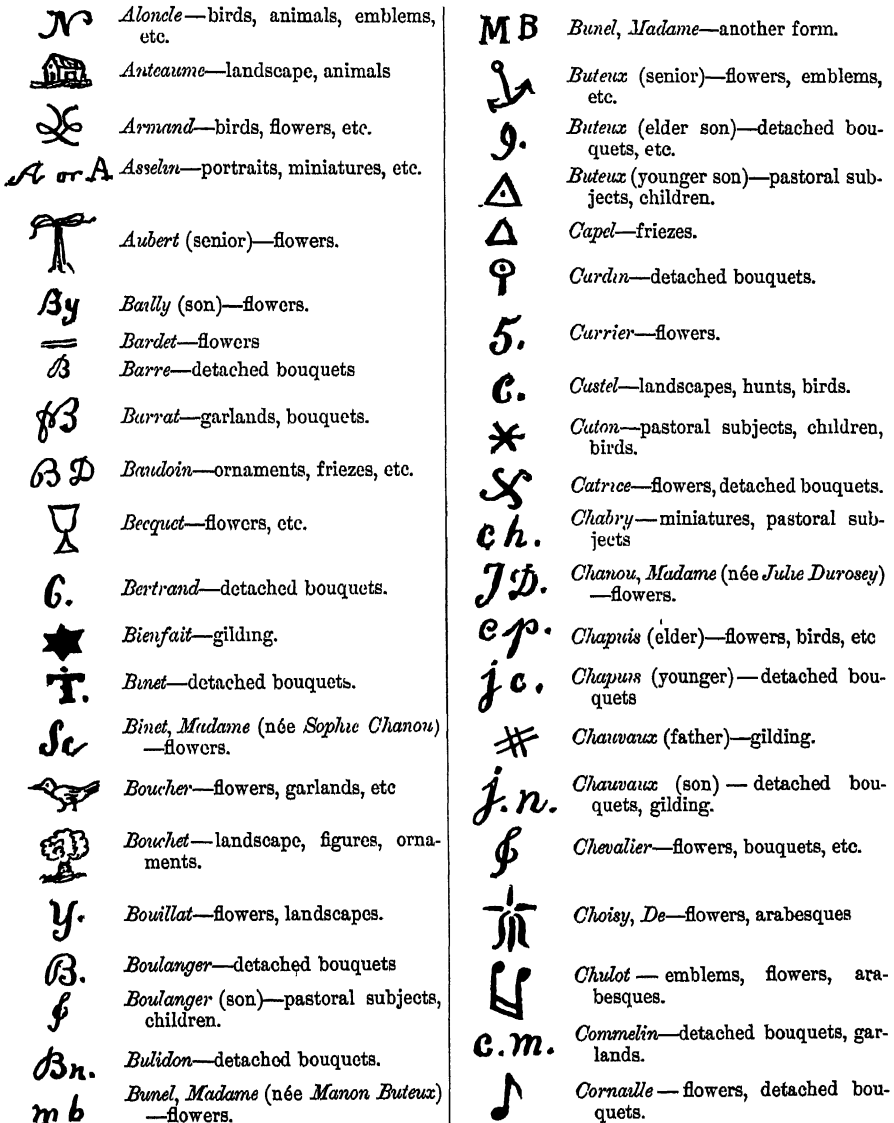 N Aloncle—birds, animals, emblems,
etc.
Anteaume—landscape, animals
Armand—birds, flowers, etc.
A or A Asselin—portraits, miniatures, etc.
Aubert (senior)—flowers.
By Bailly (son)—flowers.
Bardet—flowers
B Barre—detached bouquets
B Barrat—garlands, bouquets.
B D Baudoin—ornaments, friezes, etc.
Becquet—flowers, etc.
6. Bertrand—detached bouquets.
Bienfait—gilding.
T. Binet—detached bouquets.
Sc Binet, Madame (née Sophie Chanou)
—flowers.
Boucher—flowers, garlands, etc
Bouchet—landscape, figures, orna-
ments.
Y. Bouillat—flowers, landscapes.
B. Boulanger—detached bouquets
Boulanger (son)—pastoral subjects,
children.
Bn. Bulidon—detached bouquets.
m b Bunel, Madame (née Manon Buteux)
—flowers.
M B Bunel, Madame—another form.
Buteux (senior)—flowers, emblems,
etc.
9. Buteux (elder son)—detached bou-
quets, etc.
Buteux (younger son)—pastoral sub-
jects, children.
Capel—friezes.
Cardin—detached bouquets.
5. Carrier—flowers.
C. Castel—landscapes, hunts, birds.
Caton—pastoral subjects, children,
birds.
Catrice—flowers, detached bouquets.
ch. Chabry—miniatures, pastoral sub-
jects
J D. Chanou, Madame (née Julie Durosey)
—flowers.
c p. Chapuis (élder)—flowers, birds, etc
j c. Chapuis (younger)—detached bou-
quets
Chauvaux (father)—gilding.
j. n. Chauvaux (son)—detached bou-
quets, gilding.
Chevalier—flowers, bouquets, etc.
Choisy, De—flowers, arabesques
Chulot—emblems, flowers, ara-
besques.
c. m. Commelin—detached bouquets, gar-
lands.
Cornaille—flowers, detached bou-
quets.